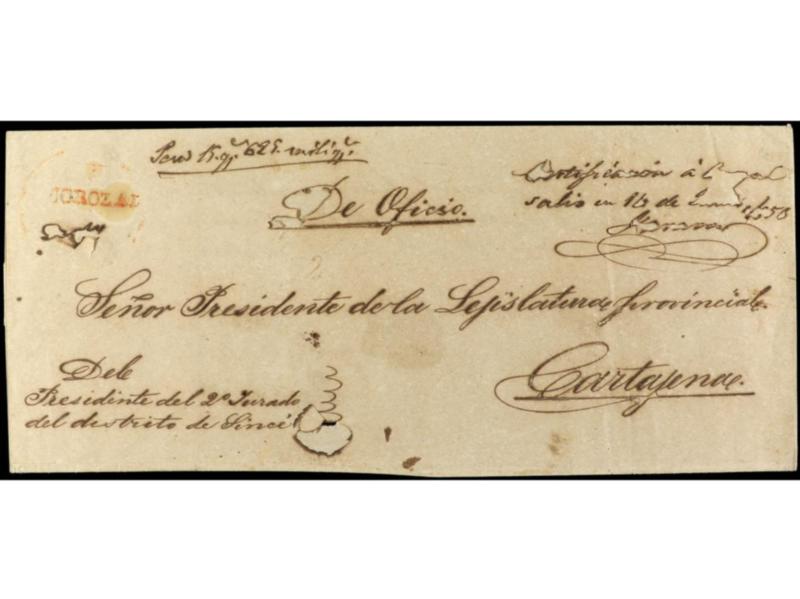 Peso 15. gr. 625. miligr.
COROZAL
De Oficio.
Certificazon á
salio en 16 de Enero 1850
Señor Presidente de la Lejislatura Provincial.
Cartajena.
Del
Presidente del 2º Jurado
del distrito de Sincé